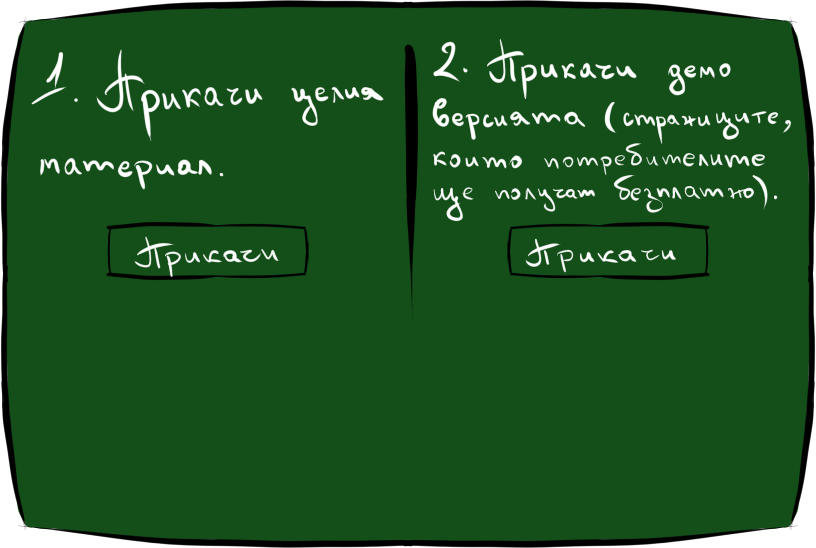 1. Прикачи целия
материал.
Прикачи
2. Прикачи демо
версията (страниците,
които потребителите
ще получат безплатно).
Прикачи